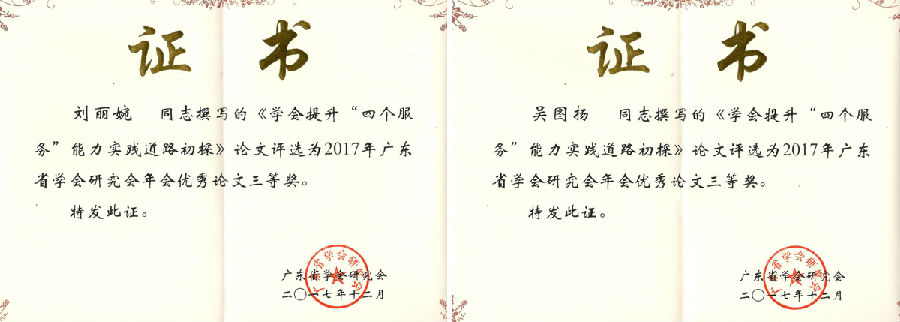 证 书
刘丽婉 同志撰写的《学会提升“四个服
务”能力实践道路初探》论文评选为2017年广东
省学会研究会年会优秀论文三等奖。
特发此证。
广东省学会研究会
二〇一七年十二月
证 书
吴图扬 同志撰写的《学会提升“四个服
务”能力实践道路初探》论文评选为2017年广东
省学会研究会年会优秀论文三等奖。
特发此证。
广东省学会研究会
二〇一七年十二月